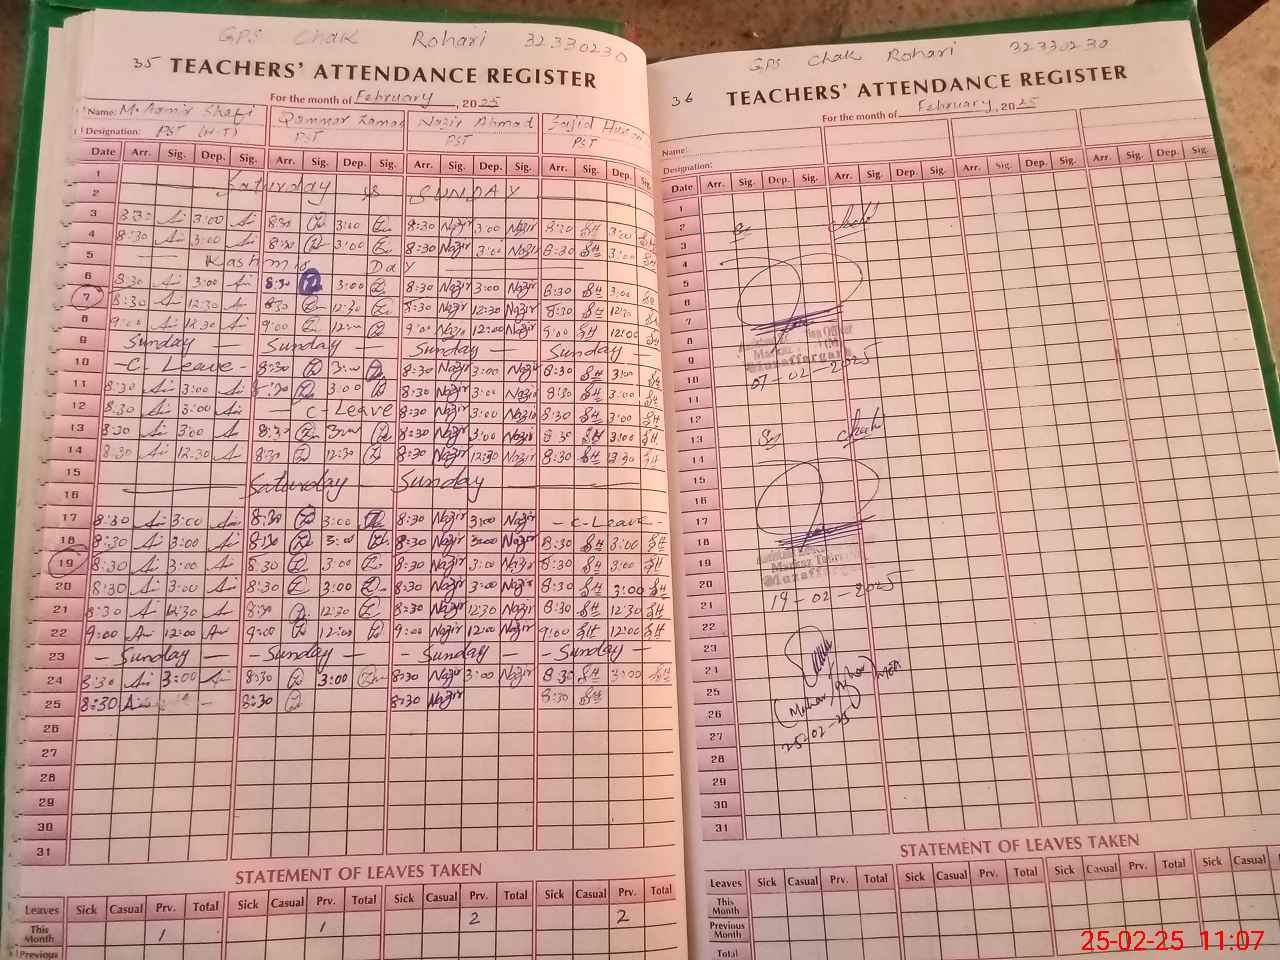 GPS Chak Rohari 32330230
35 TEACHERS' ATTENDANCE REGISTER
For the month of February, 2025
Name: M. Aamir Shafi Qammar Zaman Nazir Ahmad Sajid
Designation: PST (H-T) PST PST PST
Date Arr. Sig. Dep. Sig. Arr. Sig. Dep. Sig. Arr. Sig. Dep. Sig. Arr. Sig. Dep. Sig.
1
2 Saturday & SUNDAY
3 8:30 3:00 8:30 3:00 8:30 Nazir 3:00 Nazir 8:30 SH 3:00 SH
4 8:30 3:00 8:30 3:00 8:30 Nazir 3:00 Nazir 8:30 SH 3:00 SH
5 Kashmir Day
6 8:30 3:00 8:30 3:00 8:30 Nazir 3:00 Nazir 8:30 SH 3:00 SH
7 8:30 12:30 8:30 12:30 8:30 Nazir 12:30 Nazir 8:30 SH 12:30 SH
8 9:00 12:00 9:00 Nazir 12:00 Nazir 9:00 SH 12:00 SH
9 Sunday Sunday Sunday Sunday
10 C. Leave 8:30 3:00 8:30 Nazir 3:00 Nazir 8:30 SH 3:00 SH
11 8:30 3:00 8:30 3:00 8:30 Nazir 3:00 Nazir 8:30 SH 3:00 SH
12 8:30 3:00 C-Leave 8:30 Nazir 3:00 Nazir 8:30 SH 3:00 SH
13 8:30 3:00 8:30 3:00 8:30 Nazir 3:00 Nazir 8:30 SH 3:00 SH
14 8:30 12:30 8:30 12:30 8:30 Nazir 12:30 Nazir 8:30 SH 12:30 SH
15
16 Saturday Sunday
17 8:30 3:00 8:30 3:00 8:30 Nazir 3:00 Nazir C-Leave
18 8:30 3:00 8:30 3:00 8:30 Nazir 3:00 Nazir 8:30 SH 3:00 SH
19 8:30 3:00 8:30 3:00 8:30 Nazir 3:00 Nazir 8:30 SH 3:00 SH
20 8:30 3:00 8:30 3:00 8:30 Nazir 3:00 Nazir 8:30 SH 3:00 SH
21 8:30 12:30 8:30 12:30 8:30 Nazir 12:30 Nazir 8:30 SH 12:30 SH
22 9:00 12:00 9:00 12:00 9:00 Nazir 12:00 Nazir 9:00 SH 12:00 SH
23 Sunday Sunday Sunday Sunday
24 8:30 3:00 8:30 3:00 8:30 Nazir 3:00 Nazir 8:30 SH 3:00 SH
25 8:30 8:30 8:30 Nazir 8:30 SH
26
27
28
29
30
31
STATEMENT OF LEAVES TAKEN
Leaves Sick Casual Prv. Total Sick Casual Prv. Total Sick Casual Prv. Total Sick Casual Prv. Total
This Month 1 1 2 2
Previous
GPS Chak Rohari 32330230
36 TEACHERS' ATTENDANCE REGISTER
For the month of February, 2025
Name:
Designation:
Date Arr. Sig. Dep. Sig. Arr. Sig. Dep. Sig. Arr. Sig. Dep. Sig. Arr. Sig. Dep. Sig.
1
2
3
4
5
6
7
8
9
10
11
12
13
14
15
16
17
18
19
20
21
22
23
24
25
26
27
28
29
30
31
07-02-2025
19-02-2025
25-02-25
STATEMENT OF LEAVES TAKEN
Leaves Sick Casual Prv. Total Sick Casual Prv. Total Sick Casual Prv. Total Sick Casual Prv.
This Month
Previous Month
Total
25-02-25 11:07